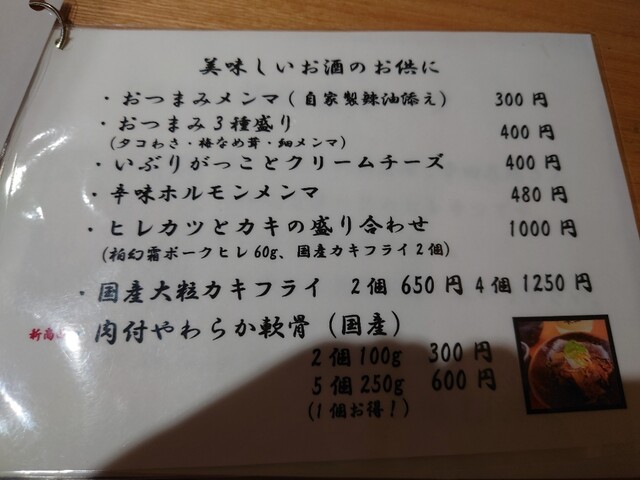 美味しいお酒のお供に
・おつまみメンマ(自家製辣油添え) 300円
・おつまみ3種盛り 400円
(タコわさ・梅なめ茸・細メンマ)
・いぶりがっことクリームチーズ 400円
・辛味ホルモンメンマ 480円
・ヒレカツとカキの盛り合わせ 1000円
(柏幻霜ポークヒレ60g、国産カキフライ2個)
・国産大粒カキフライ 2個 650円 4個 1250円
肉付やわらか軟骨(国産)
2個100g 300円
5個250g 600円
(1個お得!)